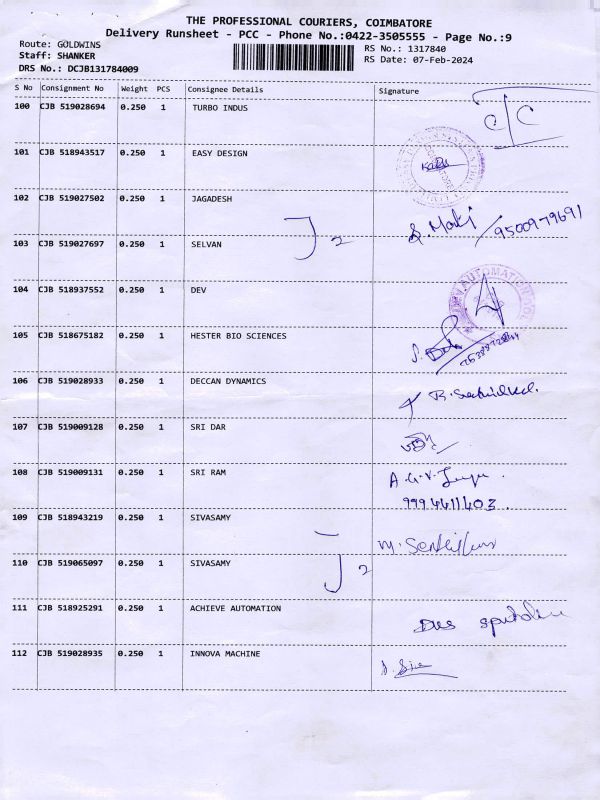 THE PROFESSIONAL COURIERS, COIMBATORE
Delivery Runsheet - PCC - Phone No.:0422-3505555 - Page No.:9
Route: GOLDWINS
RS No.: 1317840
Staff: SHANKER
RS Date: 07-Feb-2024
DRS No.: DCJB131784009
S No Consignment No Weight PCS Consignee Details Signature
100 CJB 519028694 0.250 1 TURBO INDUS C/C
101 CJB 518943517 0.250 1 EASY DESIGN
102 CJB 519027502 0.250 1 JAGADESH
9500979691
2
103 CJB 519027697 0.250 1 SELVAN
104 CJB 518937552 0.250 1 DEV
AUTOMATION
105 CJB 518675182 0.250 1 HESTER BIO SCIENCES
106 CJB 519028933 0.250 1 DECCAN DYNAMICS
107 CJB 519009128 0.250 1 SRI DAR
108 CJB 519009131 0.250 1 SRI RAM
9994611403
109 CJB 518943219 0.250 1 SIVASAMY
2
110 CJB 519065097 0.250 1 SIVASAMY
111 CJB 518925291 0.250 1 ACHIEVE AUTOMATION
112 CJB 519028935 0.250 1 INNOVA MACHINE